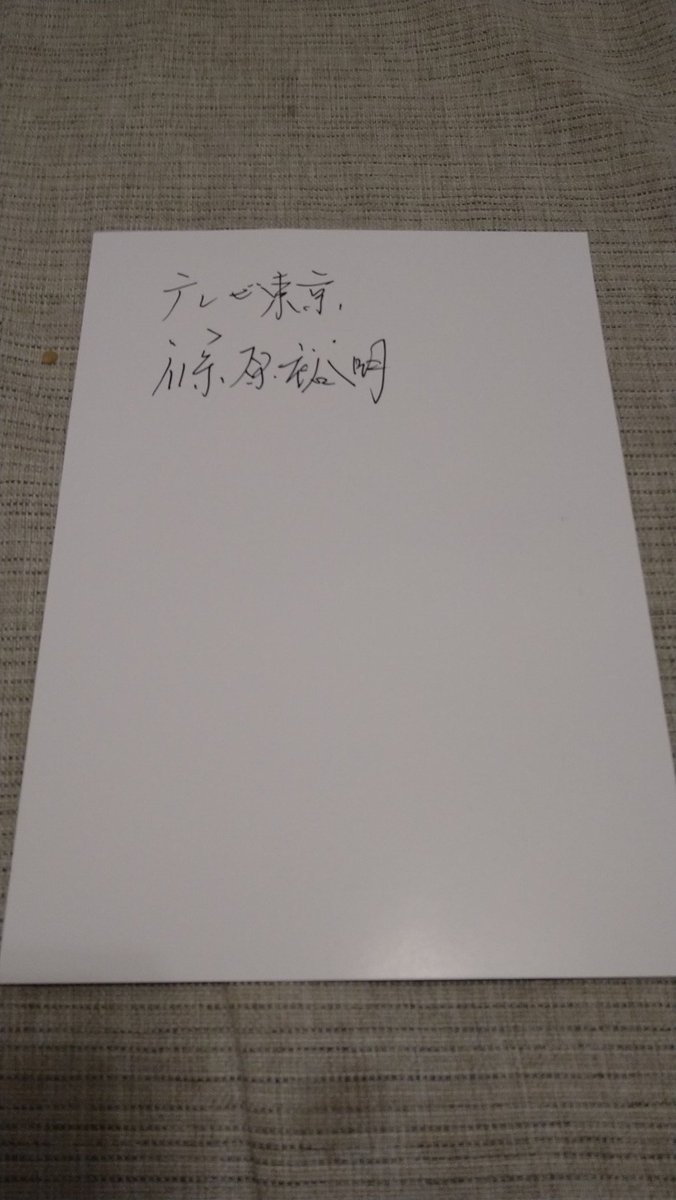 テレビ東京
篠原裕明